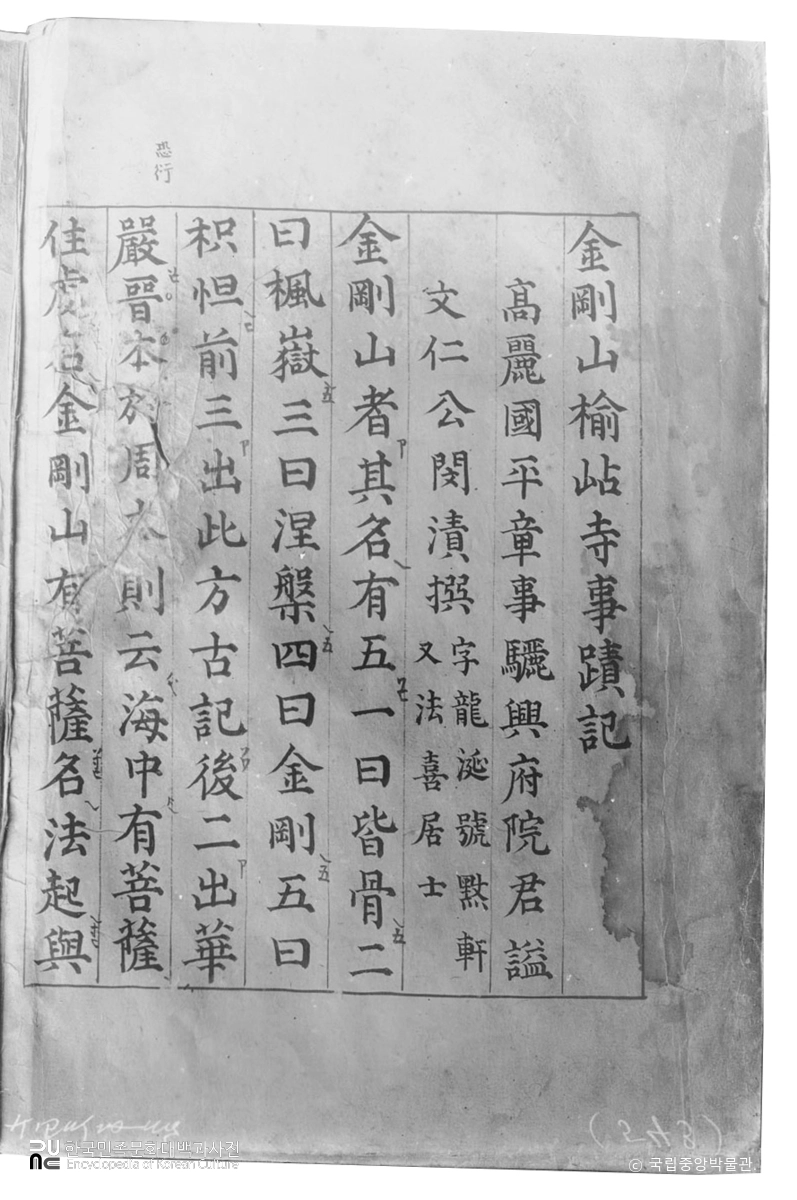 金剛山楡岾寺事蹟記
高麗國平章事驪興府院君謚
文仁公閔漬撰
字龍涎號黙軒
又法喜居士
金剛山者其名有五一曰皆骨二
曰楓嶽三曰涅槃四曰金剛五曰
枳怛前三出此方古記後二出華
恐衍
嚴晉本於周本則云海中有菩薩
住處名金剛山有菩薩名法起與
한국민족문화대백과사전
Encyclopedia of Korean Culture
ⓒ 국립중앙박물관